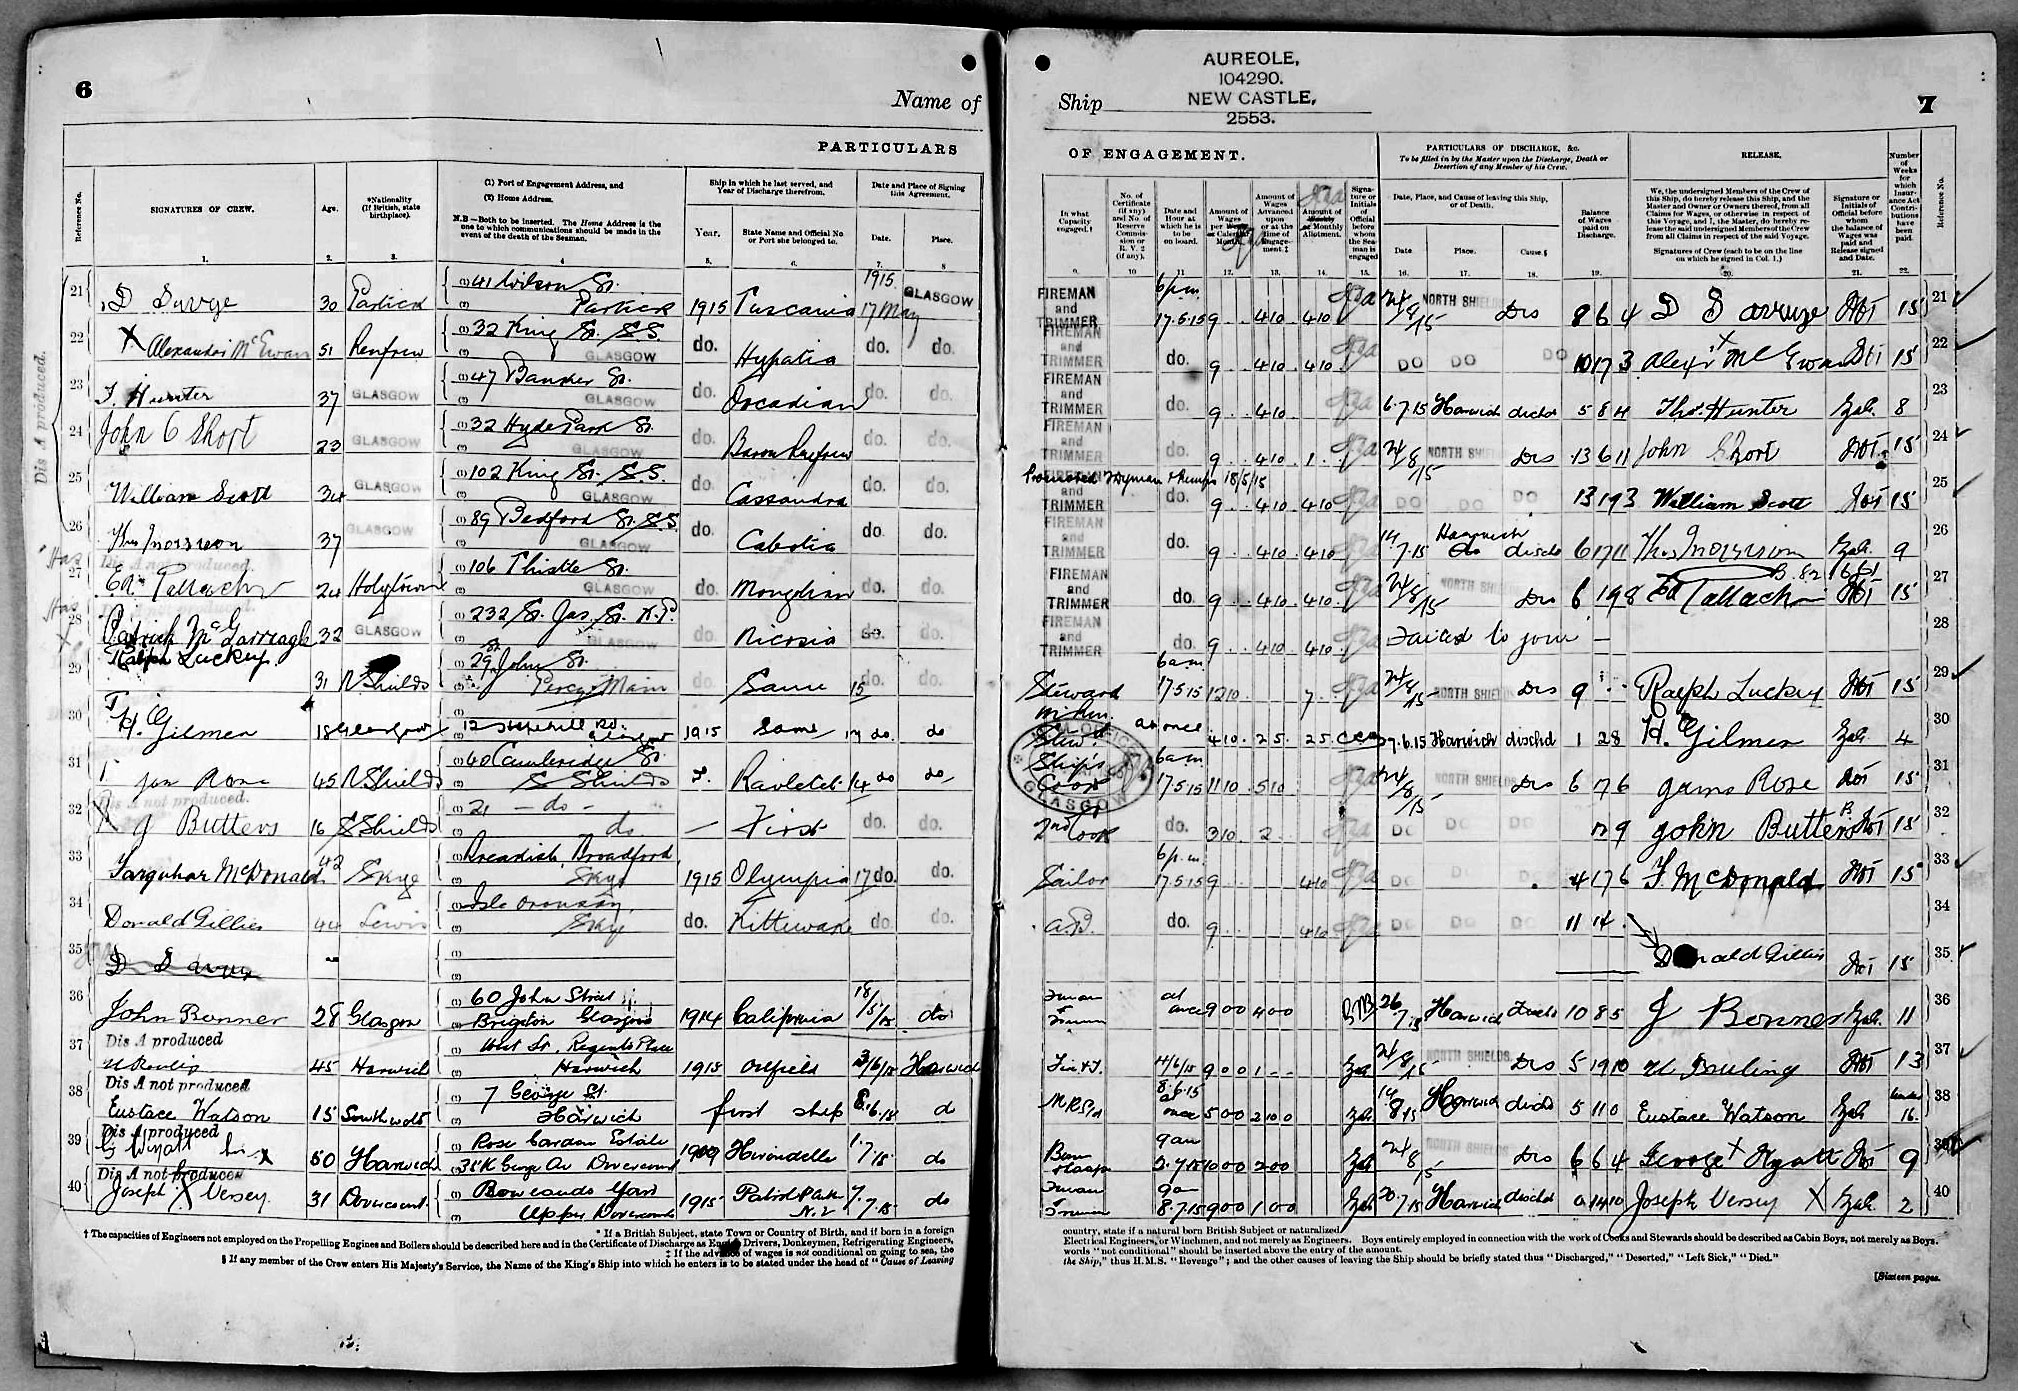 6
Name of
PARTICULARS
Reference No.
SIGNATURES OF CREW.
Age.
*Nationality (If British, state birthplace).
(1) Port of Engagement Address, and
(2) Home Address.
N.B.—Both to be inserted. The Home Address is the one to which communications should be made in the event of the death of the Seaman.
Ship in which he last served, and Year of Discharge therefrom.
Year.
State Name and Official No or Port she belonged to.
Date and Place of Signing this Agreement.
Date.
Place.
1. 2. 3. 4 5. 6. 7. 8
Dis A produced.
21 D Savge 30 Partick (1) 41 Wilson St. (2) Partick 1915 Tuscania 1915 17 May GLASGOW
22 X Alexander McEwan 51 Renfrew (1) 32 King St. S.S. (2) GLASGOW do. Hypatia do. do.
23 T. Hunter 37 GLASGOW (1) 47 St. (2) GLASGOW do. Orcadian do. do.
24 John C Short 23 GLASGOW (1) 32 Hyde Park St. (2) GLASGOW do. Baron Renfrew do. do.
25 William Scott 34 GLASGOW (1) 102 King St. S.S. (2) GLASGOW do. Cassandra do. do.
26 Thos Morrison 37 GLASGOW (1) 89 Bedford St. S.S. (2) GLASGOW do. Cabotia do. do.
Dis A not produced.
27 Ed. Tallach 24 Holytown (1) 106 Thistle St. (2) GLASGOW do. Mongolian do. do.
28 Patrick McGarreagle 32 GLASGOW (1) 232 St. Jas. St. K.P. (2) GLASGOW do. Nicosia do. do.
29 Ralph Luckey 31 N Shields (1) 29 John St. (2) Percy Main do. Same 15 do.
30 H. Gilmer 18 Glasgow (1) (2) 12 Rd. Glasgow 1915 Same 17 do. do
31 Jas Rose 45 N Shields (1) 60 Cambridge St. (2) S Shields 14 do do
Dis A not produced.
32 X J Butters 16 S Shields (1) 21 — do — (2) do — First do. do.
33 Farquhar McDonald. 42 Skye (1) Breadish, Broadford, (2) Skye 1915 Olympia 17 do. do.
34 Donald Gillies 44 Lewis (1) Isle Oronsay, (2) Skye do. Kittiwake do. do.
35 (1) (2)
36 John Bonner 28 Glasgow 60 John Street Brigton Glasgow 1914 California 18/5/15 do
Dis A produced
37 45 Harwich (1) West St. Regents Place (2) Harwich 1915 Oilfield 3/6/15 Harwich
Dis A not produced
38 Eustace Watson 15 Southwold 7 George St. Harwich first ship 8.6.15 do
Dis A produced
39 G Wyatt his X 50 Harwich (1) Rose Garden Estate (2) 35 K George Av Dovercourt 1909 Hirondelle 1.7.15 do
Dis A not produced
40 Joseph X Versey. 31 Dovercourt. (1) Bowlands Yard (2) Upper Dovercourt 1915 7.7.15 do
† The capacities of Engineers not employed on the Propelling Engines and Boilers should be described here and in the Certificate of Discharge as Engine Drivers, Donkeymen, Refrigerating Engineers,
* If a British Subject, state Town or Country of Birth, and if born in a foreign
‡ If the advance of wages is not conditional on going to sea, the
§ If any member of the Crew enters His Majesty's Service, the Name of the King's Ship into which he enters is to be stated under the head of "Cause of Leaving
AUREOLE,
104290.
NEW CASTLE,
2553.
Ship
7
OF ENGAGEMENT.
In what Capacity engaged.†
No. of Certificate (if any) and No. of Reserve Commission or R. V. 2 (if any).
Date and Hour at which he is to be on board.
Amount of Wages per Week or Calendar Month.
Amount of Wages Advanced upon or at the time of Engagement.‡
Amount of Weekly or Monthly Allotment.
Signature or Initials of Official before whom the Seaman is engaged
PARTICULARS OF DISCHARGE, &c.
To be filled in by the Master upon the Discharge, Death or Desertion of any Member of his Crew.
Date, Place, and Cause of leaving this Ship, or of Death.
Date
Place.
Cause.§
Balance of Wages paid on Discharge.
RELEASE.
We, the undersigned Members of the Crew of this Ship, do hereby release this Ship, and the Master and Owner or Owners thereof, from all Claims for Wages, or otherwise in respect of this Voyage, and I, the Master, do hereby release the said undersigned Members of the Crew from all Claims in respect of the said Voyage.
Signatures of Crew (each to be on the line on which he signed in Col. 1.)
Signature or Initials of Official before whom the balance of Wages was paid and Release signed and Date.
Number of Weeks for which Insurance Act Contributions have been paid.
Reference No.
9. 10 11. 12. 13. 14. 15. 16. 17. 18. 19. 20. 21. 22.
FIREMAN and TRIMMER 6 p.m. 17.5.15 9 4 10 4 10 24/8/15 NORTH SHIELDS Dis 8 6 4 15 21
FIREMAN and TRIMMER do. 9 4 10 4 10 DO DO DO 10 17 3 Alexr X McEwan 15 22
FIREMAN and TRIMMER do. 9 4 10 6.7.15 Harwich dischd 5 8 4 Thos. Hunter 8 23
FIREMAN and TRIMMER 9 4 10 1 24/8/15 NORTH SHIELDS Dis 13 6 11 John Short 15 24
18/5/15
FIREMAN and TRIMMER do. 9 4 10 4 10 DO DO DO 13 19 3 William Scott 15 25
FIREMAN and TRIMMER do. 9 4 10 4 10 14.7.15 Harwich dischd 6 17 11 Thos Morrison 9 26
FIREMAN and TRIMMER do. 9 4 10 4 10 24/8/15 NORTH SHIELDS Dis 6 19 8 Ed Tallach 15 27
FIREMAN and TRIMMER do. 9 4 10 4 10 Failed to join — 28
Steward 6 a.m. 17.5.15 12 10 7 24/8/15 NORTH SHIELDS Dis 9 Ralph Luckey 15 29
Stewd at once 4 10 2 5 2 5 7.6.15 Harwich dischd 1 2 8 H. Gilmer 4 30
Ships Cook 6 a.m. 17.5.15 11 10 5 10 24/8/15 NORTH SHIELDS Dis 6 7 6 James Rose 15 31
GLASGOW
2nd Cook do. 3 10 2 DO DO DO John Butters 15 32
Sailor 6 p.m. 17.5.15 9 4 10 DO DO DO 4 17 6 F. McDonald 15 33
A.B. do. 9 4 10 DO DO DO 11 14 34
Donald Gillies 15 35
at once 9 0 0 4 0 0 26/7/15 Harwich Dischd 10 8 5 J Bonner 11 36
Fir & T. 4/6/15 9 0 0 1 - - 24/8/15 NORTH SHIELDS Dis 5 19 10 13 37
8.6.15 at once 5 0 0 2 10 0 Harwich dischd 5 11 0 Eustace Watson 16. 38
9 am 2.7.15 10 0 0 2 0 0 24/8/15 NORTH SHIELDS Dis 6 6 4 George X Wyatt 9 39
9 am 8.7.15 9 0 0 1 0 0 20.7.15 Harwich dischd 0 14 10 Joseph Versey X 2 40
country, state if a natural born British Subject or naturalized
Electrical Engineers, or Winchmen, and not merely as Engineers. Boys entirely employed in connection with the work of Cooks and Stewards should be described as Cabin Boys, not merely as Boys.
words "not conditional" should be inserted above the entry of the amount.
the Ship," thus H.M.S. "Revenge"; and the other causes of leaving the Ship should be briefly stated thus "Discharged," "Deserted," "Left Sick," "Died."
[Sixteen pages.